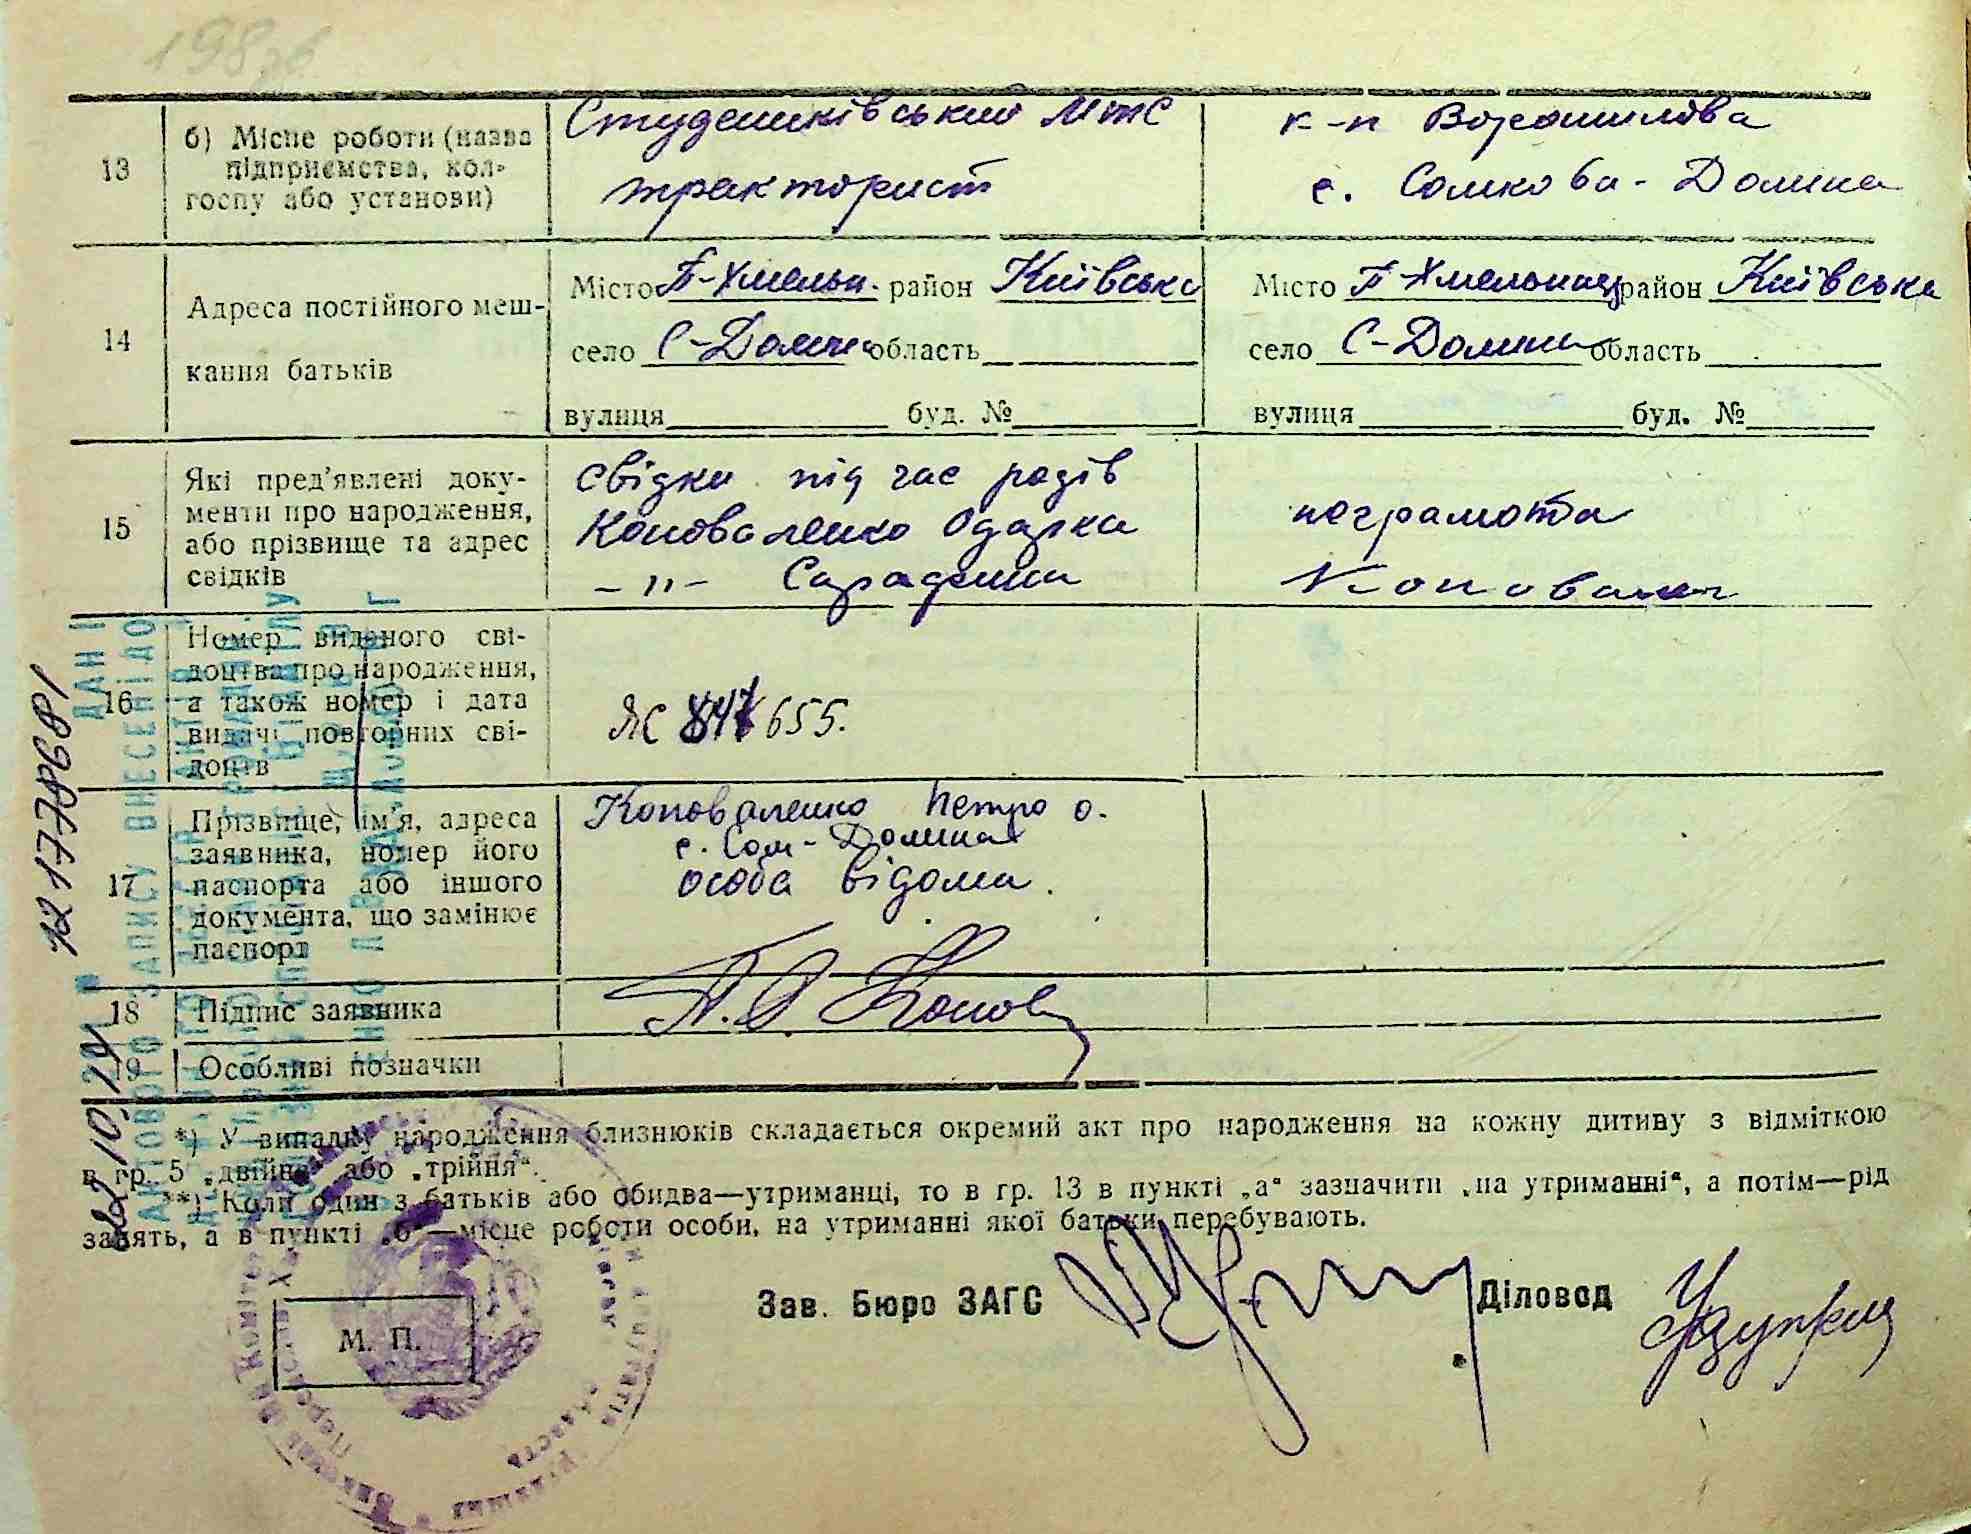 198зв
13
б) Місце роботи (назва
підприємства, кол-
госпу або установи)
Студениківський МТС
тракторист
к-п Ворошилова
с. Сомкова-Долина
14
Адреса постійного меш-
кання батьків
Місто П-Хмельн. район Київська
село С-Долина область
вулиця буд. №
Місто П-Хмельниц район Київська
село С-Долина область
вулиця буд. №
15
Які пред'явлені доку-
менти про народження,
або прізвище та адрес
свідків
свідки під час родів
Коноваленко Одарка
-"-
неграмотна
Коновален
16
Номер виданого сві-
доцтва про народження,
а також номер і дата
видачі повторних сві-
доцтв
ЯС 847655.
17
Прізвище, ім'я, адреса
заявника, номер його
паспорта або іншого
документа, що замінює
паспорт
Коноваленко Петро О.
с. Сом-Долина
особа відома.
18
Підпис заявника
П. О. Конов
19
Особливі позначки
*) У випадку народження близнюків складається окремий акт про народження на кожну дитину з відміткою
в гр. 5 „двійня" або „трійня".
**) Коли один з батьків або обидва—утриманці, то в гр. 13 в пункті „а" зазначити „на утриманні", а потім—рід
занять, а в пункті „б"—місце роботи особи, на утриманні якої батьки перебувають.
Зав. Бюро ЗАГС
Діловод
М. П.
ДАНІ
АКТОВОГО ЗАПИСУ ВНЕСЕНІ ДО
22.10.19
121778681